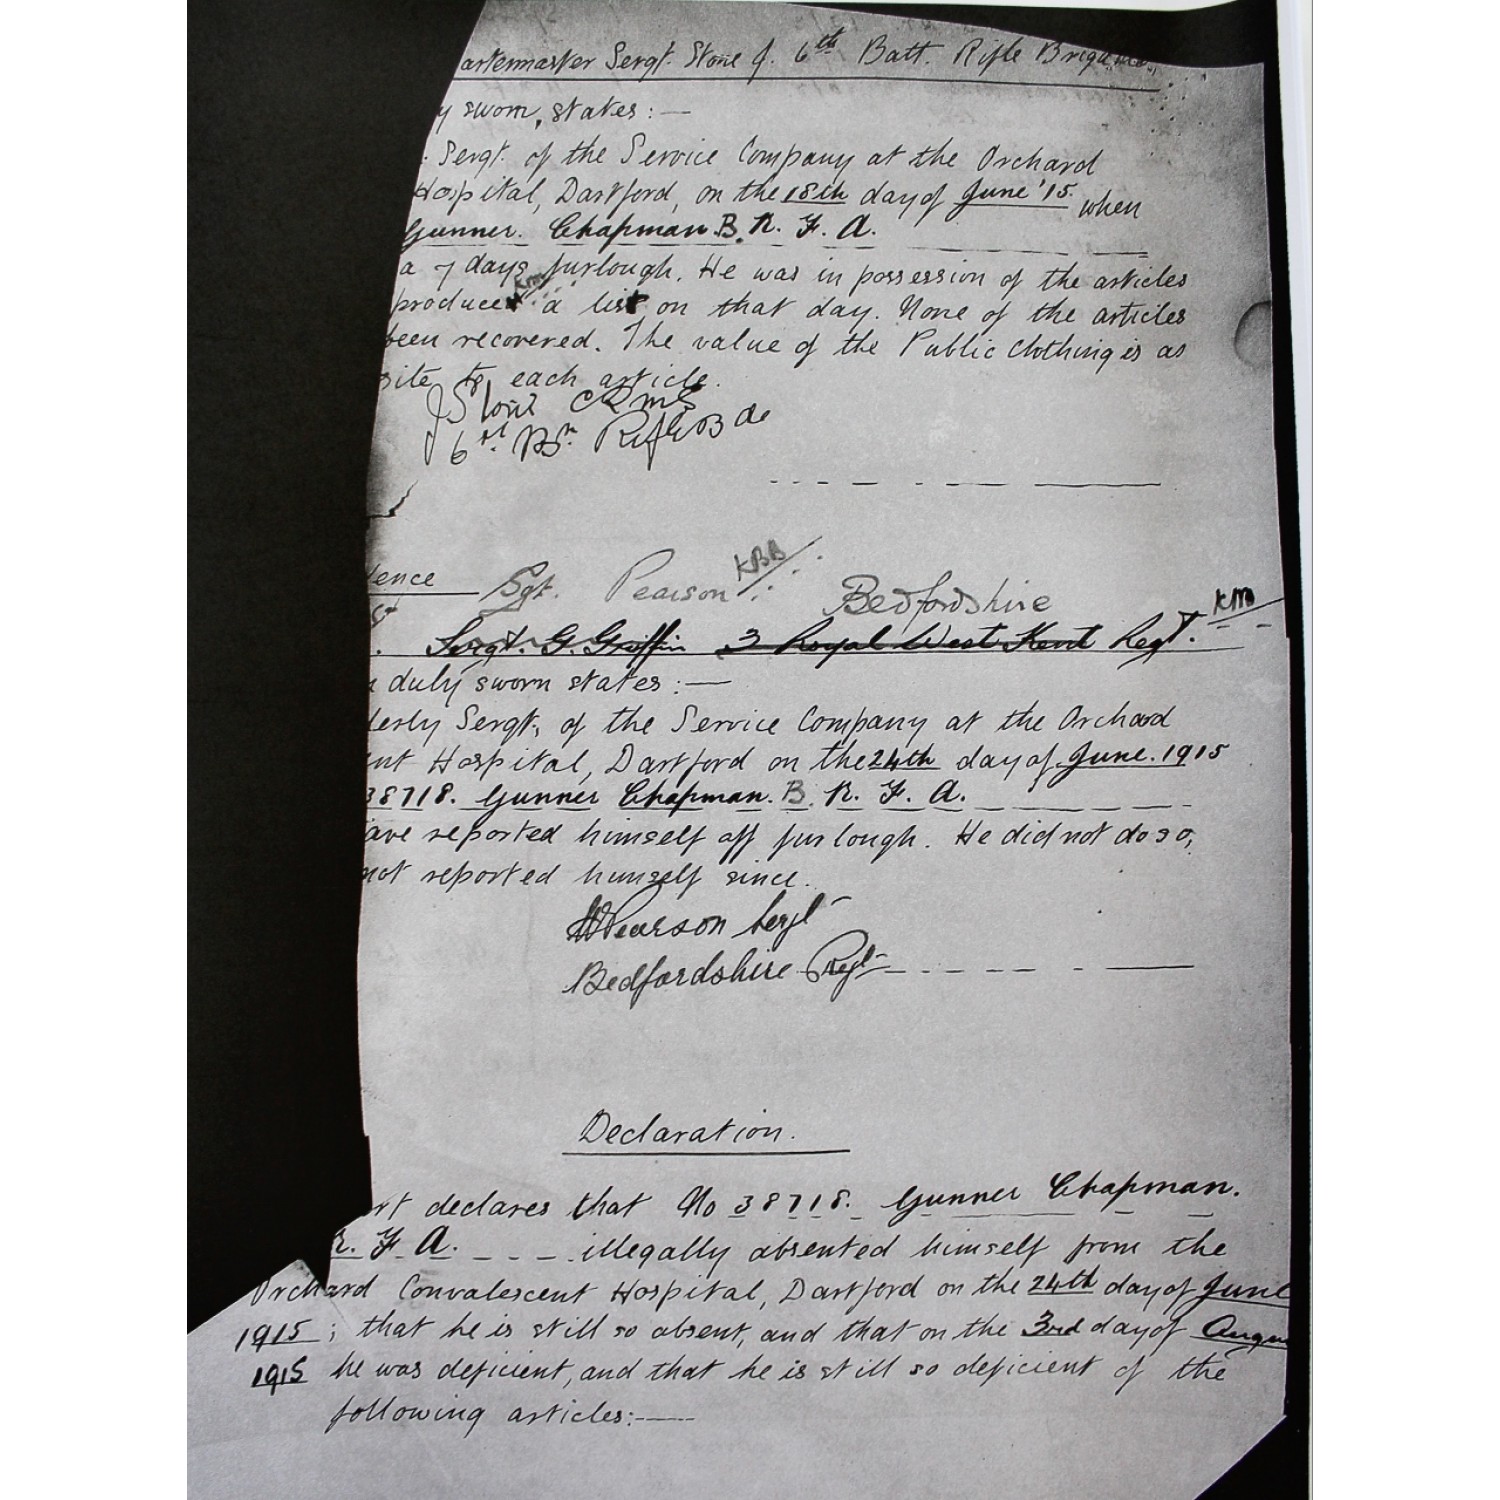 artermaster Sergt. Stone J. 6th Batt. Rifle Brigade.
y sworn, states :—
. Sergt. of the Service Company at the Orchard
Hospital, Dartford, on the 18th day of June '15. when
Gunner. Chapman. B. R. F. A.
a 7 days furlough. He was in possession of the articles
produce a list on that day. None of the articles
been recovered. The value of the Public Clothing is as
site to each article.
J Stone CQMS
6th Bn. Rifle Bde
ence Sgt. Pearson KBB Bedfordshire
. Sergt. G. Griffin 3 Royal West Kent Regt.
duly sworn states :—
derly Sergt, of the Service Company at the Orchard
ent Hospital, Dartford on the 24th day of June. 1915
38718. Gunner Chapman. B. R. F. A.
ave reported himself off furlough. He did not do so,
not reported himself since.
Pearson Sergt
Bedfordshire Regt
Declaration.
rt declares that No 38718. Gunner Chapman.
R. F. A. illegally absented himself from the
Orchard Convalescent Hospital, Dartford on the 24th day of June
1915 ; that he is still so absent, and that on the 3rd day of Augu
1915 he was deficient, and that he is still so deficient of the
following articles:—